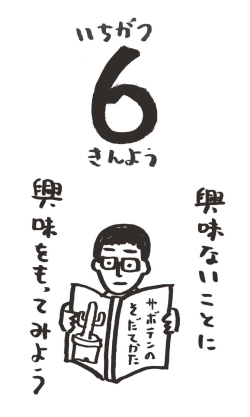 いちがつ
6
きんよう
興味ないことに
興味をもってみよう
サボテンの
そだてかた